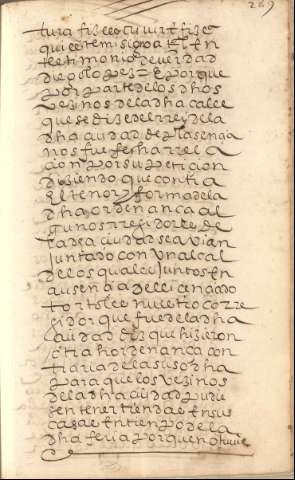 269
tura fize escreuir e fize
aqui este mi signo a tal En
testimonio de verdad
diego lopez E porque
por parte de los dhos
vezinos de la dha calle
que se dize del rrey de la
dha ciudad de plasençia
nos fue fecha rrela
cion por su peticion
diziendo que contra
El tenor y forma de la
dha ordenança al
gunos rregidores de
la dha ciudad se avian
juntado con Un alcal
de los quales juntos En
ausençia del licenciado
tortoles nuestro corre
gidor que fue de la dha
ciudad diz que hizieron
otra hordenança con
traria de la suso dha
para que los vezinos
de la dha ciudad pudie
sen tener tienda En sus
casas En tienpo de la
dha feria porque no